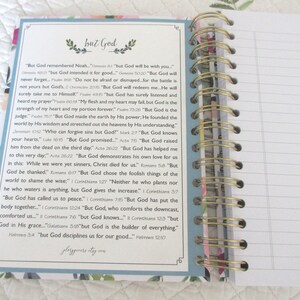 but God
"But God remembered Noah... Genesis 8:1 "but God will be with you..."
Genesis 48:21 "but God intended it for good..." Genesis 50:20 "But God will
never forget... Psalm 9:18 "Do not be afraid or dismayed, for the battle is
not yours but God's. 2 Chronicles 20:15 "But God will redeem me...He will
surely take me to Himself." Psalm 49:15 "but God has surely listened and
heard my prayer" Psalm 66:19 "My flesh and my heart may fail, but God is the
strength of my heart and my portion forever." Psalm 73:26 "But God is the
judge." Psalm 75:7 "But God made the earth by His power; He founded the
world by His wisdom and stretched out the heavens by His understanding."
Jeremiah 10:12 "Who can forgive sins but God?" Mark 2:7 "But God knows
your hearts." Luke 16:15 "But God promised..." Acts 7:5 "But God raised
him from the dead on the third day." Acts 10:40 "But God has helped me
to this very day." Acts 26:22 "But God demonstrates his own love for us
in this: While we were yet sinners, Christ died for us." Romans 5:8 "But
God be thanked." Romans 6:17 "But God chose the foolish things of the
world to shame the wise." 1 Corinthians 1:27 "Neither he who plants nor
he who waters is anything, but God gives the increase." 1 Corinthians 3:7
"But God has called us to peace." 1 Corinthians 7:15 "But God has put the
body together..." 1 Corinthians 12:24 "But God, who comforts the downcast,
comforted us..." 2 Corinthians 7:6 "but God knows..." 2 Corinthians 12:3 "but
God in His grace..." Galatians 3:18 "but God is the builder of everything."
Hebrews 3:4 "but God disciplines us for our good..." Hebrews 12:10